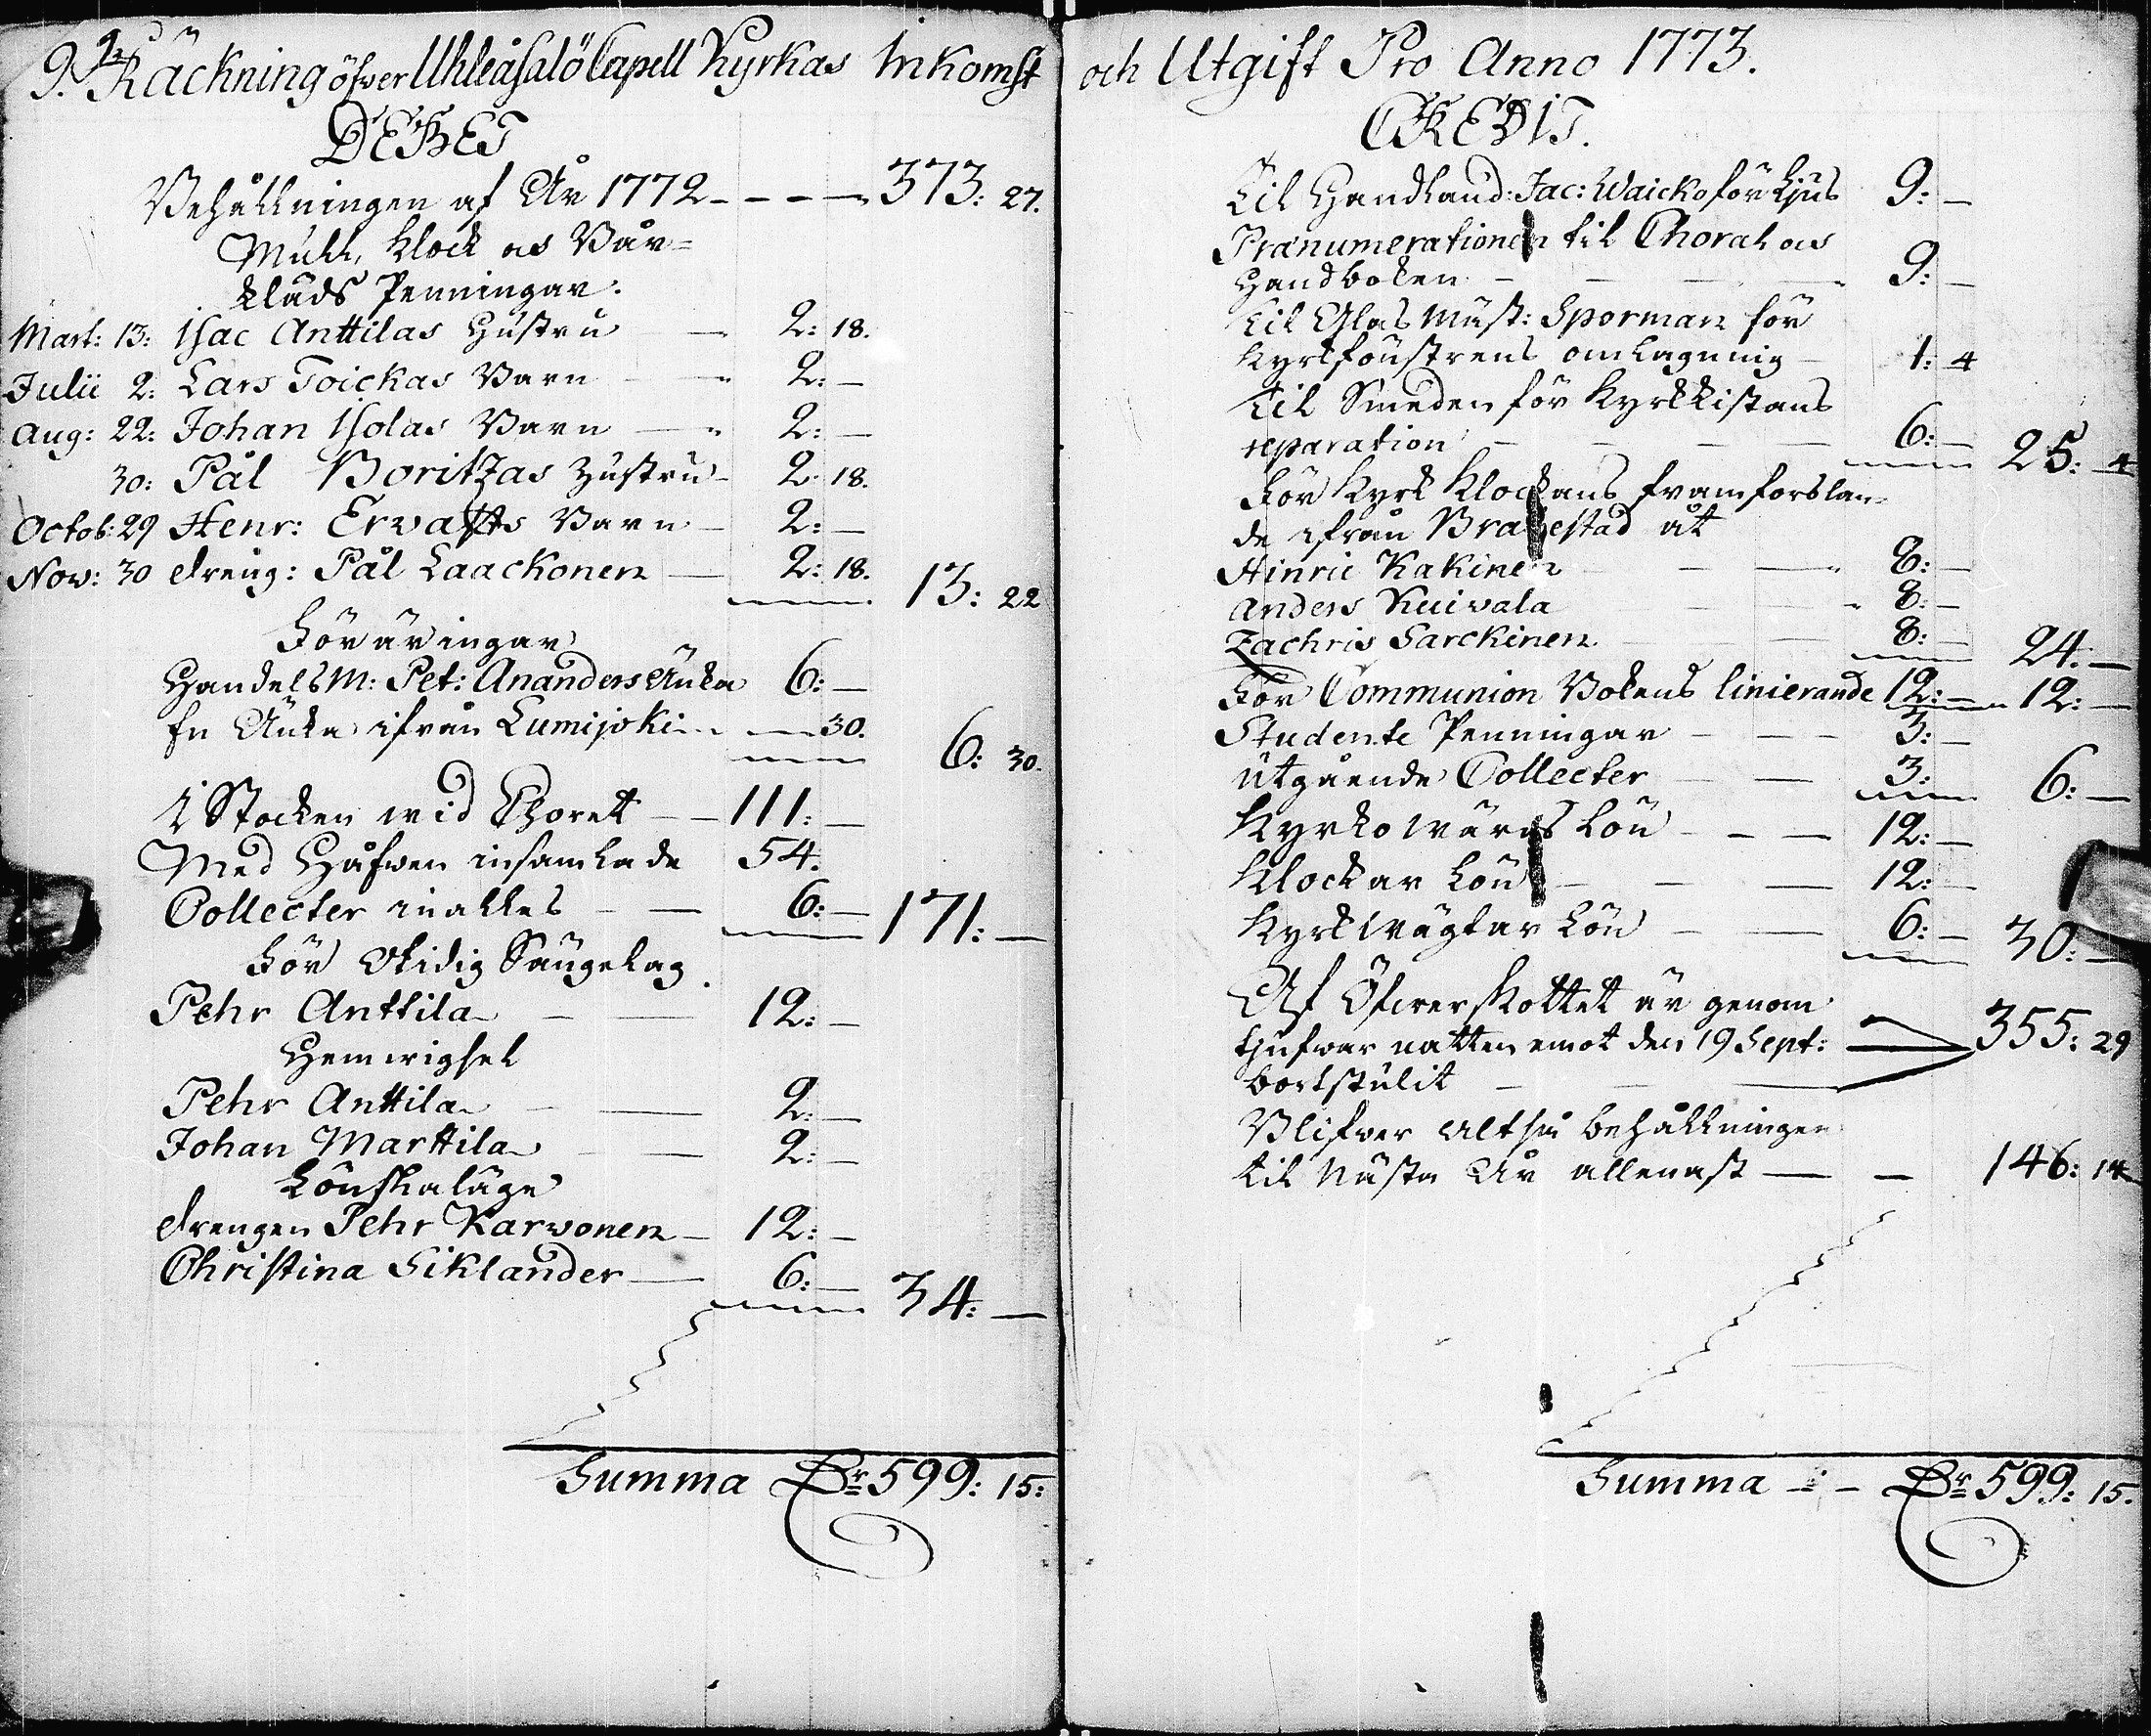 9. Räckning öfver Uhleåsalö Capell Kyrkas Inkomst
DEBET
Behållningen af År 1772 - - - - 373: 27.
Mull, Klock os Bår=
kläds Penningar.
Mart: 13: Isac Anttilas Hustru — 2: 18.
Julii 2: Lars Toickas Barn — 2: —
Aug: 22: Johan Isolas Barn — 2: —
30: Pål Boritzas Hustru - 2: 18.
Octob: 29 Henr: Ervasts Barn - 2: —
Nov: 30 dreng: Pål Laackonen — 2: 18. 13: 22
Föräringar
Handels M: Pet: Ananders Änka 6: —
En Änka ifrån Lumijoki - — 30. 6: 30.
I Stocken wid Choret - - 111: —
Med Håfwen insamlade 54.
Collecter inalles - — 6: — 171: —
För Otidig Sängelag
Pehr Anttila - — 12: —
Hemwigsel
Pehr Anttila - — 2: —
Johan Marttila - — 2: —
Lönskaläge
drengen Pehr Karwonen - 12: —
Christina Siklander — 6: — 34: —
Summa Dr 599: 15:
och Utgift Pro Anno 1773.
CREDIT.
Til Handland: Jac: Waicko för Ljus 9: —
Prænumerationen til Choral os
Handboken - — — 9: —
Til Glas Mäst: Sporman för
Kyrkfönstrens omlagning — 1: 4
Til Smeden för Kyrkkistans
reparation - - - — 6: — 25: 4
För Kyrk Klockans framforslan=
de ifrån Brahestad åt
Hinric Kakinen - — 8: —
Anders Kuivala - 8: —
Zachris Sarckinen — 8: — 24: —
För Communion Bokens linierande 12: — 12: —
Studente Penningar - - - 3: —
Utgående Collecter - — 3: 6: —
Kyrkowärds Lön - - — 12: —
Klockar Lön - - — 12: —
Kyrkwägtar Lön - — 6: — 30: —
Af Öfwerskottet är genom
tjufwar natten emot den 19 Sept: 355: 29
bortstulit - - —
Blifwer altså behållningen
til Nästa År allenast — - 146: 14
Summa - - Dr 599: 15.